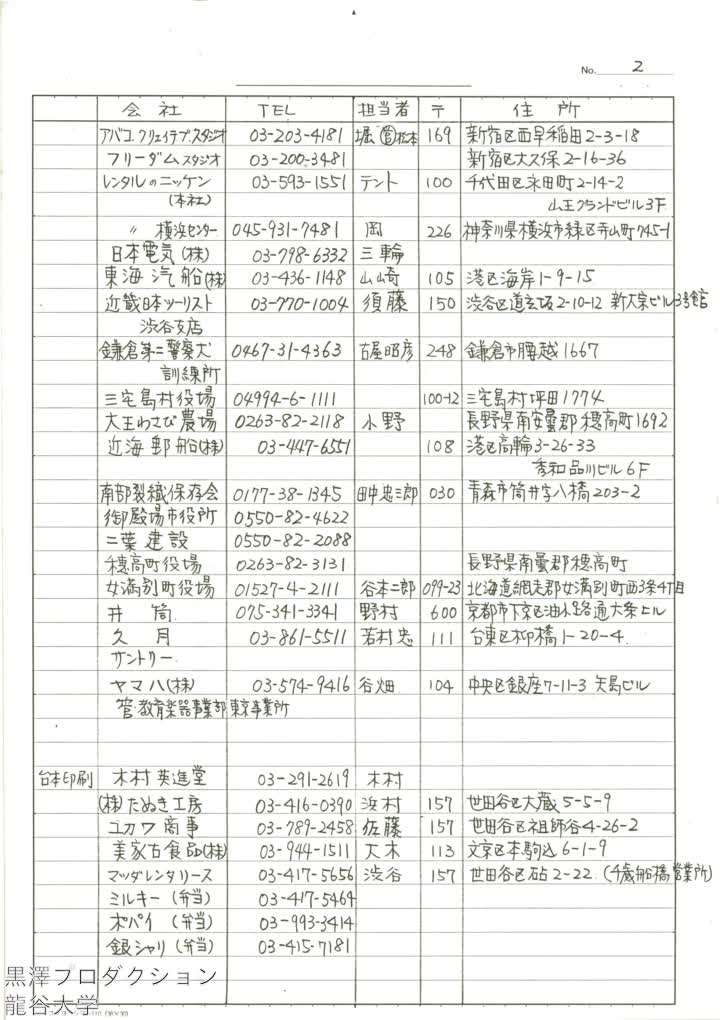 No. 2
会社 TEL 担当者 〒 住所
アバコ.クリェイテブ.スタジオ 03-203-4181 堀 松本 169 新宿区西早稲田2-3-18
フリーダムスタジオ 03-200-3481 新宿区大久保2-16-36
レンタルのニッケン 03-593-1551 テント 100 千代田区永田町2-14-2
(本社) 山王グランドビル3F
〃 横浜センター 045-931-7481 岡 226 神奈川県横浜市緑区寺山町745-1
日本電気(株) 03-798-6332 三輪
東海汽船(株) 03-436-1148 山崎 105 港区海岸1-9-15
近畿日本ツーリスト 03-770-1004 須藤 150 渋谷区道玄坂2-10-12 新大宗ビル3号館
渋谷支店
鎌倉第二警察犬 0467-31-4363 古屋昭彦 248 鎌倉市腰越1667
訓練所
三宅島村役場 04994-6-1111 100-12 三宅島村坪田1774
大王わさび農場 0263-82-2118 小野 長野県南安曇郡穂高町1692
近海郵船(株) 03-447-6551 108 港区高輪3-26-33
秀和品川ビル6F
南部裂織保存会 0177-38-1345 田中忠三郎 030 青森市筒井字八橋203-2
御殿場市役所 0550-82-4622
二葉建設 0550-82-2088
穂高町役場 0263-82-3131 長野県南曇郡穂高町
女満別町役場 01527-4-2111 谷本二郎 099-23 北海道網走郡女満別町西3条4丁目
井筒 075-341-3341 野村 600 京都市下京区油小路通大条ビル
久月 03-861-5511 若村忠 111 台東区柳橋1-20-4
サントリー
ヤマハ(株) 03-574-9416 谷畑 104 中央区銀座7-11-3 矢島ビル
管・教育楽器事業部東京事務所
台本印刷 木村英進堂 03-291-2619 木村
(株)たぬき工房 03-416-0390 浜村 157 世田谷区大蔵5-5-9
ユカワ商事 03-789-2458 佐藤 157 世田谷区祖師谷4-26-2
美家古食品(株) 03-944-1511 大木 113 文京区本駒込6-1-9
マツダレンタリース 03-417-5656 渋谷 157 世田谷区砧2-22.(千歳船橋営業所)
ミルキー(弁当) 03-417-5464
ポパイ(弁当) 03-993-3414
銀シャリ(弁当) 03-415-7181
黒澤プロダクション
龍谷大学